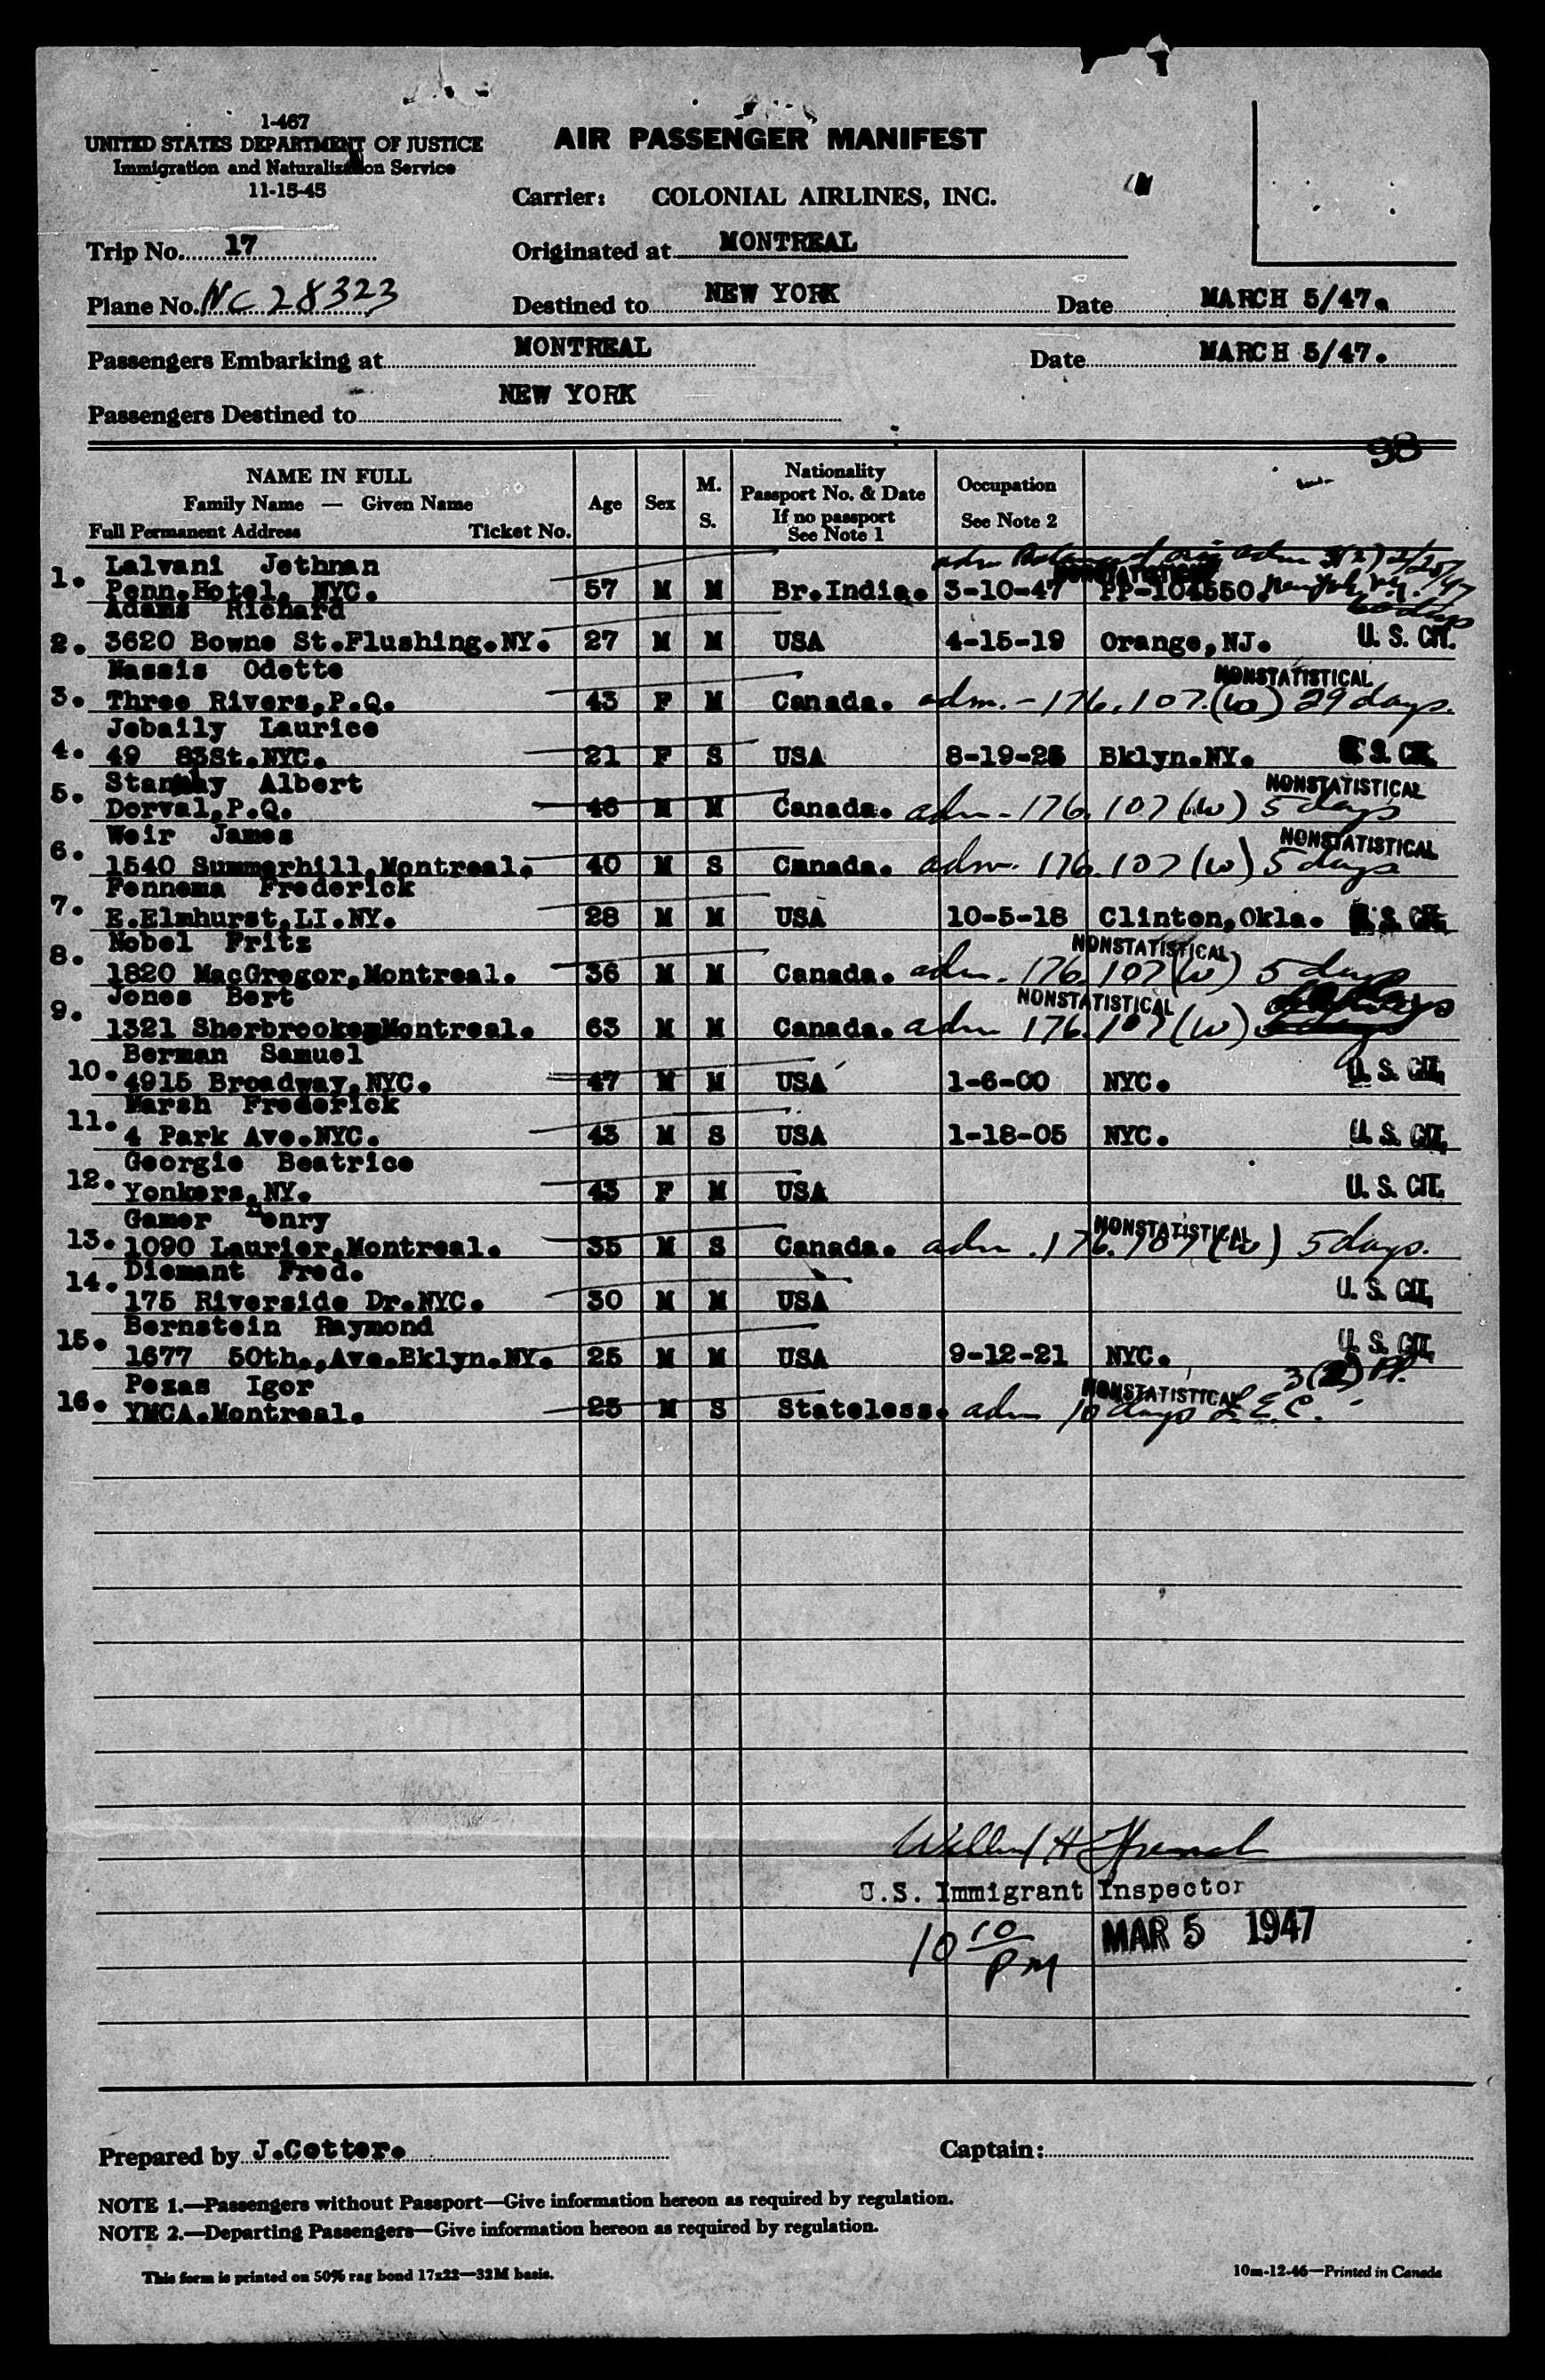 1-467
UNITED STATES DEPARTMENT OF JUSTICE
Immigration and Naturalization Service
11-15-45
AIR PASSENGER MANIFEST
Carrier: COLONIAL AIRLINES, INC.
Trip No. 17
Originated at MONTREAL
Plane No. NC 28323
Destined to NEW YORK Date MARCH 5/47.
Passengers Embarking at MONTREAL Date MARCH 5/47.
Passengers Destined to NEW YORK
98
NAME IN FULL
Family Name — Given Name
Full Permanent Address Ticket No.
Age
Sex
M.
S.
Nationality
Passport No. & Date
If no passport
See Note 1
Occupation
See Note 2
Lalvani Jethman
1. Penn.Hotel, NYC. 57 M M Br.India. 3-10-47 PP-104550.
Adams Richard
2. 3620 Bowne St.Flushing.NY. 27 M M USA 4-15-19 Orange,NJ. U. S. CIT.
Massis Odette NONSTATISTICAL
3. Three Rivers,P.Q. 43 F M Canada. adm. - 176.107.(W) 29 days.
Jebaily Laurice
4. 49 83St.NYC. 21 F S USA 8-19-25 Bklyn.NY. U. S. CIT.
Albert NONSTATISTICAL
5. Dorval,P.Q. 46 M M Canada. adm - 176.107 (W) 5 days
Weir James NONSTATISTICAL
6. 1540 Summerhill,Montreal. 40 M S Canada. adm. 176.107 (W) 5 days
Fennema Frederick
7. E.Elmhurst,LI.NY. 28 M M USA 10-5-18 Clinton,Okla. U. S. CIT.
Nobel Fritz NONSTATISTICAL
8. 1820 MacGregor,Montreal. 36 M M Canada. adm. 176.107 (W) 5 days
Jones Bert NONSTATISTICAL
9. 1321 Sherbrooke,Montreal. 63 M M Canada. adm 176.107 (W)
Berman Samuel
10. 4915 Broadway,NYC. 47 M M USA 1-6-00 NYC. U. S. CIT.
Marsh Frederick
11. 4 Park Ave.NYC. 43 M S USA 1-18-05 NYC. U. S. CIT.
Georgie Beatrice
12. Yonkers,NY. 43 F M USA U. S. CIT.
Gamer Henry NONSTATISTICAL
13. 1090 Laurier,Montreal. 35 M S Canada. adm. 176.107 (W) 5 days.
Diemant Fred.
14. 175 Riverside Dr.NYC. 30 M M USA U. S. CIT.
Bernstein Raymond
15. 1677 50th.,Ave.Bklyn.NY. 25 M M USA 9-12-21 NYC. U. S. CIT.
Pezas Igor NONSTATISTICAL 3(2)
16. YMCA.Montreal. 25 M S Stateless. adm 10 days
U.S. Immigrant Inspector
10 10 PM MAR 5 1947
Prepared by J.Cotter. Captain:
NOTE 1.—Passengers without Passport—Give information hereon as required by regulation.
NOTE 2.—Departing Passengers—Give information hereon as required by regulation.
This form is printed on 50% rag bond 17x22—32M basis. 10m-12-46—Printed in Canada